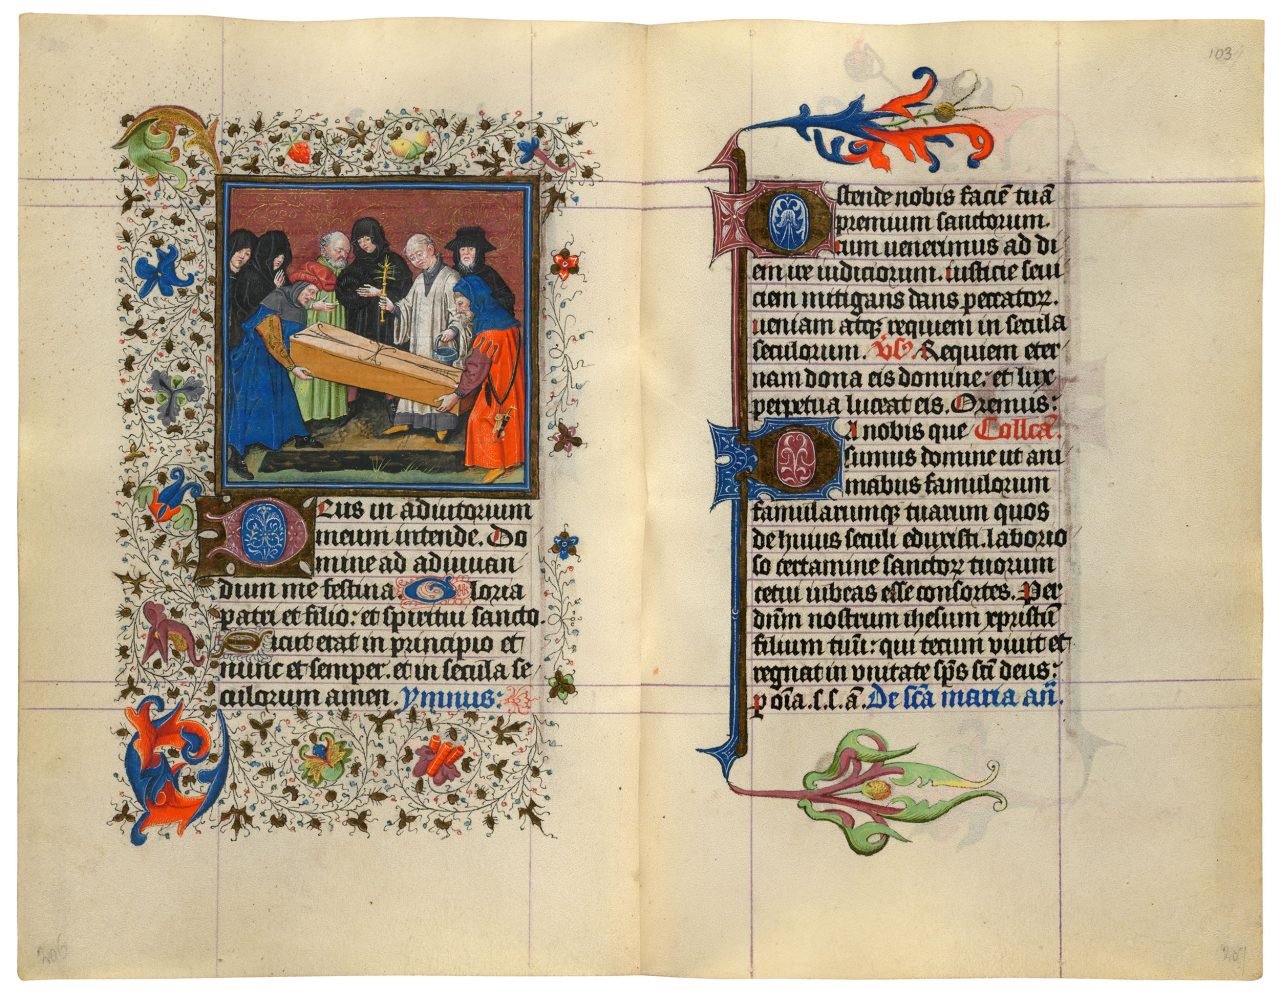 Deus in adiutorium
meum intende. Do
mine ad adiuuan
dum me festina Gloria
patri et filio: et spiritui sancto.
Sicut erat in principio et
nunc et semper. et in secula se
culorum amen. ymnus:
103
Ostende nobis faciē tuā
premium sanctorum.
cum uenerimus ad di
em ire iudiciorum. iusticie seui
ciem mitigans dans peccator.
ueniam atq requiem in secula
seculorum. Requiem eter
nam dona eis domine: et lux
perpetua luceat eis. Oremus:
Da nobis que Collcā.
sumus domine ut ani
mabus famulorum
famularumq tuarum quos
de huius seculi eduxisti. laborio
so certamine sanctor tuorum
cetui iubeas esse consortes. Per
dūm nostrum ihesum xpristū
filium tuū: qui tecum viuit et
regnat in vnitate sp̄s sc̄i deus:
p oīa .s.s. ā. De scā maria añ.